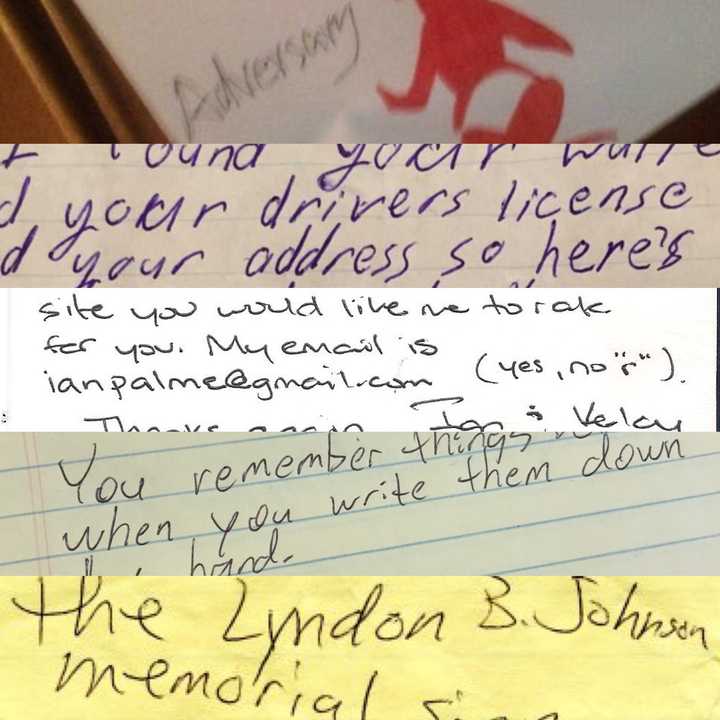 Adversary
I found your walle
d your drivers license
d your address so here's
site you would like me to rate
for you. My email is
ianpalme@gmail.com (yes, no "r").
Thanks again Ian & Kelay
You remember things
when you write them down
hand.
the Lyndon B. Johnson
memorial